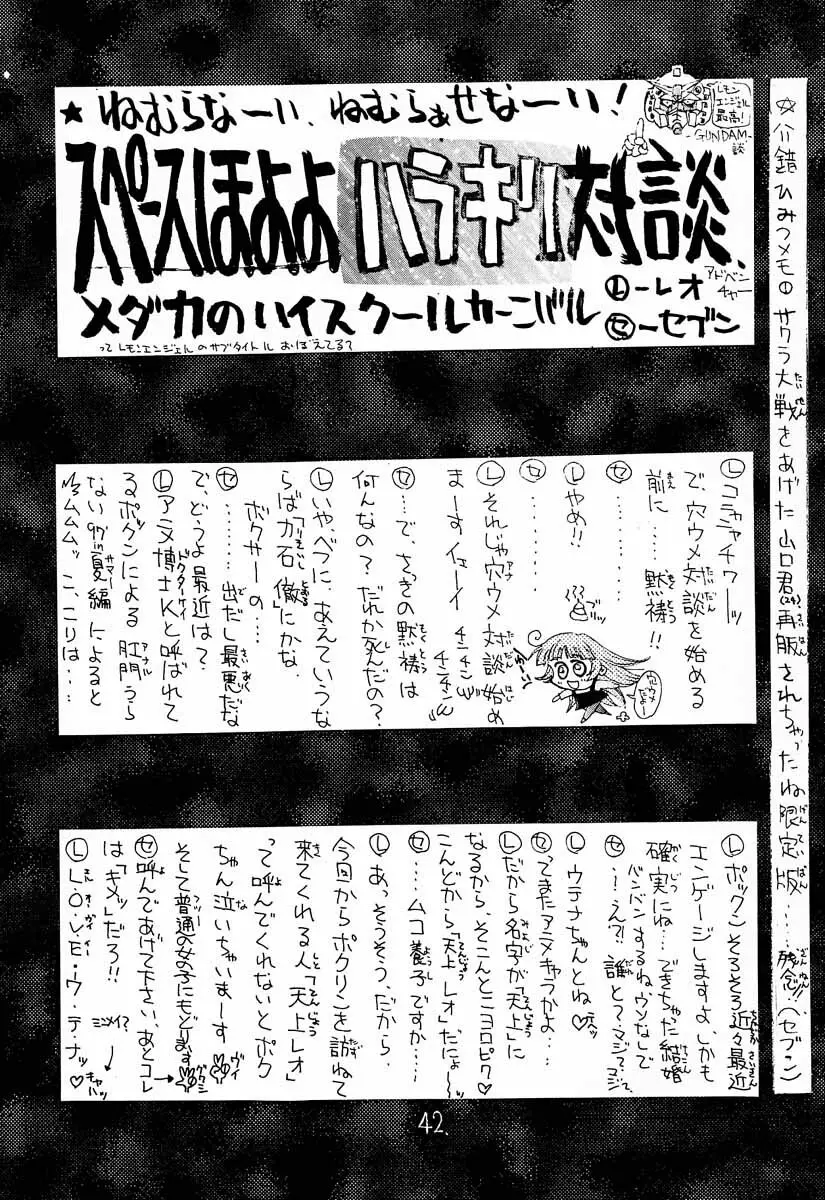 ★ねむらなーい、ねむらぁせなーい!
レモン
エンジェル
最高!
-GUNDAM-
談
スペースほよよ ハラキリ対談、
メダカのハイスクールカーニバル
アドベン
チャー
Ⓛ-レオ
㋝-セブン
ってレモンエンジェルのサブタイトルおぼえてる?
サクラ大戦をあげた山口君(24)再販されちゃったね限定版……残念!!(セブン)
Ⓛコニャニャチワーッ
で、穴ウメ対談を始める
前に……黙祷!!
㋝………………
Ⓛやめ!!
㋝………
Ⓛそれじゃ穴ウメ対談始め
まーすイェーイ
チンチン
チンチン
㋝…で、さっきの黙祷は
何んなの?だれか死んだの?
Ⓛいや、べつに、あえていうな
らば「力石徹」にかな
ボクサーの…
㋝……出だし最悪だな
で、どうよ最近は?
Ⓛアニメ博士Kと呼ばれて
るポックンによる肛門うら
ない97''夏編によると
ムムムッこ、こりは…
穴ウメ
だよー
Ⓛポックンそろそろ近々最近
エンゲージしますよ、しかも
確実にね…できちゃった結婚
バンバンするね、ウソなしで
㋝…!え?!誰と?マジで?マジで、
Ⓛウテナちゃんとね♡
㋝ってまたアニメキャラかよ…
Ⓛだから名字が「天上」に
なるから、そこんとこヨロピク♡
こんどから「天上レオ」だにょ〜〜ッ
㋝……ムコ養子ですか……
Ⓛあっそうそう、だから
今回からポクリンを訪ねて
来てくれる人「天上レオ」
って呼んでくれないとポク
ちゃん泣いちゃいまーす
そして普通の女の子にもどります
㋝呼んであげて下さい、あとコレ
は「キメッ」だろ!!
ⓁL・O・V・E・ウ・テ・ナッ♡
42.